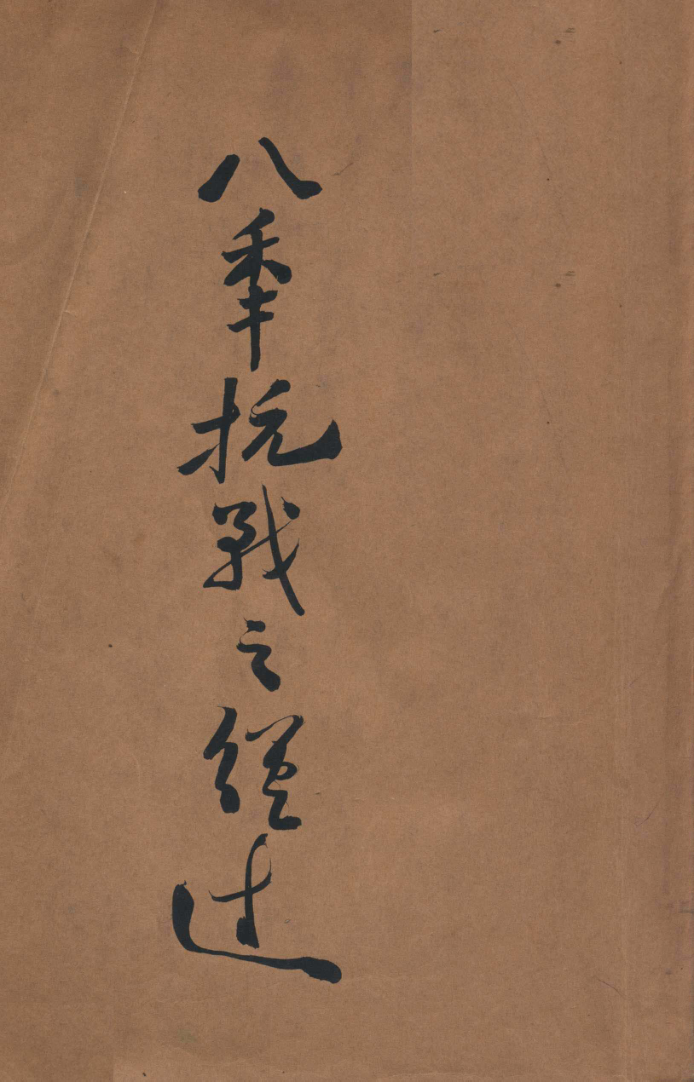 八年抗戰之經过